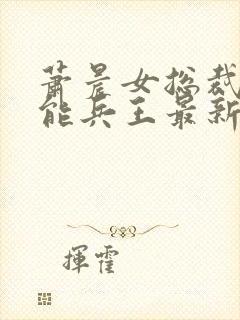 萧晨女总裁
能兵王最新
揮霍